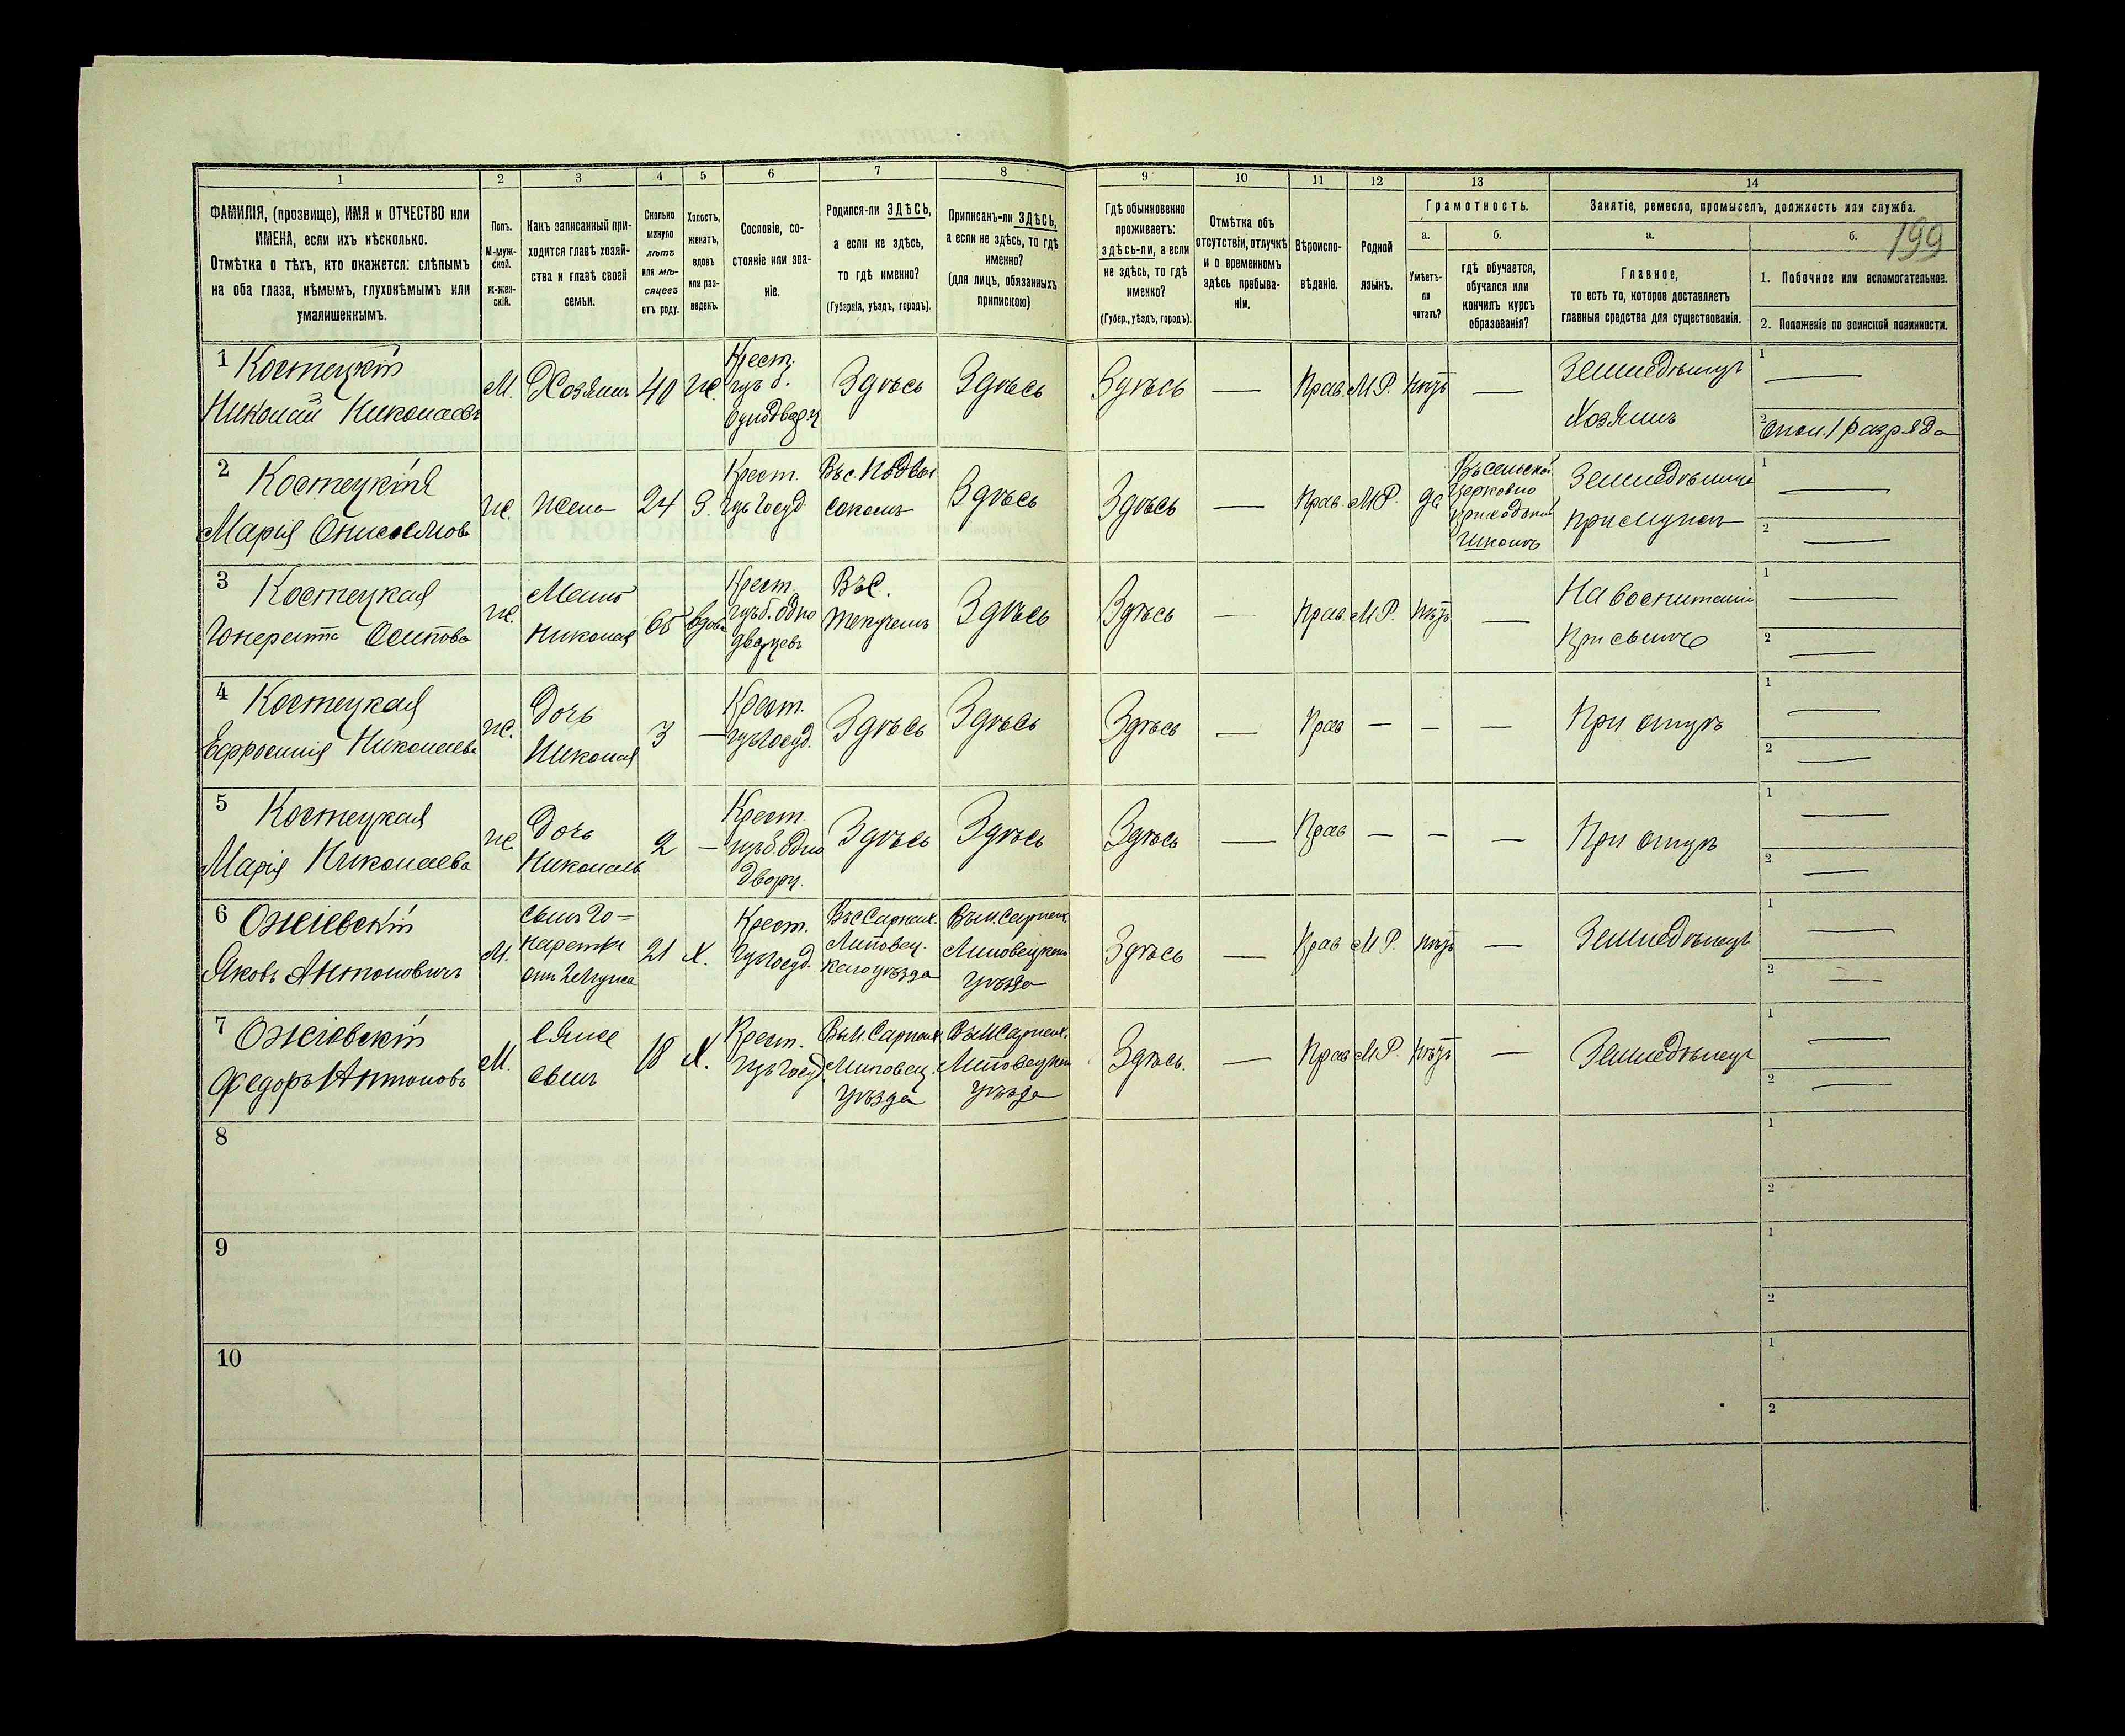 199
1 2 3 4 5 6 7 8 9 10 11 12 13 14
ФАМИЛІЯ, (прозвище), ИМЯ и ОТЧЕСТВО или
ИМЕНА, если ихъ нѣсколько.
Отмѣтка о тѣхъ, кто окажется: слѣпымъ
на оба глаза, нѣмымъ, глухонѣмымъ или
умалишеннымъ.
Полъ.
М-муж-
ской.
Ж-жен-
скій.
Какъ записанный при-
ходится главѣ хозяй-
ства и главѣ своей
семьи.
Сколько
минуло
лѣтъ
или мѣ-
сяцевъ
отъ роду.
Холостъ,
женатъ,
вдовъ
или раз-
веденъ.
Сословіе, со-
стояніе или зва-
ніе.
Родился-ли ЗДѢСЬ,
а если не здѣсь,
то гдѣ именно?
(Губернія, уѣздъ, городъ).
Приписанъ-ли ЗДѢСЬ,
а если не здѣсь, то гдѣ
именно?
(для лицъ, обязанныхъ
припискою)
Гдѣ обыкновенно
проживаетъ:
здѣсь-ли, а если
не здѣсь, то гдѣ
именно?
(Губер., уѣздъ, городъ).
Отмѣтка объ
отсутствіи, отлучкѣ
и о временномъ
здѣсь пребыва-
ніи.
Вѣроиспо-
вѣданіе.
Родной
языкъ.
Грамотность.
а.
Умѣетъ-
ли
читать?
б.
гдѣ обучается,
обучался или
кончилъ курсъ
образованія?
Занятіе, ремесло, промыселъ, должность или служба.
а.
Главное,
то есть то, которое доставляетъ
главныя средства для существованія.
б.
1. Побочное или вспомогательное.
2. Положеніе по воинской повинности.
1 Костецкій
Николай Николаевъ
М.
Хозяинъ
40
Ж.
Крест.
изъ б.
однодворц
Здѣсь
Здѣсь
Здѣсь
—
Прав.
М.Р.
нѣтъ
—
Земледѣлецъ
Хозяинъ
1 —
2 Опол. 1 разряда
2
Марія
ж.
жена
24
З.
Крест.
изъ Госуд.
Здѣсь
Здѣсь
—
Прав.
М.Р.
да
Въ сельской
Церковно
приходской
школѣ
При мужѣ
1 —
2 —
3 Костецкая
Осипова
ж.
Мать
Николая
65
вдова
Крест.
изъ б. одно
дворцевъ
Въ с.
Здѣсь
Здѣсь
—
Прав.
М.Р.
нѣтъ
—
При сынѣ
1 —
2 —
4 Костецкая
Ефросинія Николаева
ж.
Дочь
Николая
3
—
Крест.
изъ Госуд.
Здѣсь
Здѣсь
Здѣсь
—
Прав
—
—
—
При отцѣ
1 —
2 —
5 Костецкая
Марія Николаева
ж
Дочь
Николая
2
—
Крест.
изъ б. Одно
дворц.
Здѣсь
Здѣсь
Здѣсь
—
Прав
—
—
—
При отцѣ
1 —
2 —
6 Ожіевскій
Яковъ Антоновичъ
М.
21
Х.
Крест.
изъ Госуд.
Липовец-
каго уѣзда
Липовецкаго
уѣзда
Здѣсь
—
Прав
М.Р.
нѣтъ
—
Земледѣлецъ
1 —
2 —
7 Ожіевскій
Федоръ Антоновъ
М.
сынъ
18
Х.
Крест.
изъ Госуд.
Липовец.
уѣзда
Липовецкаго
уѣзда
Здѣсь.
—
Прав
М.Р.
нѣтъ
—
Земледѣлецъ
1 —
2 —
8
1
2
9
1
2
10
1
2